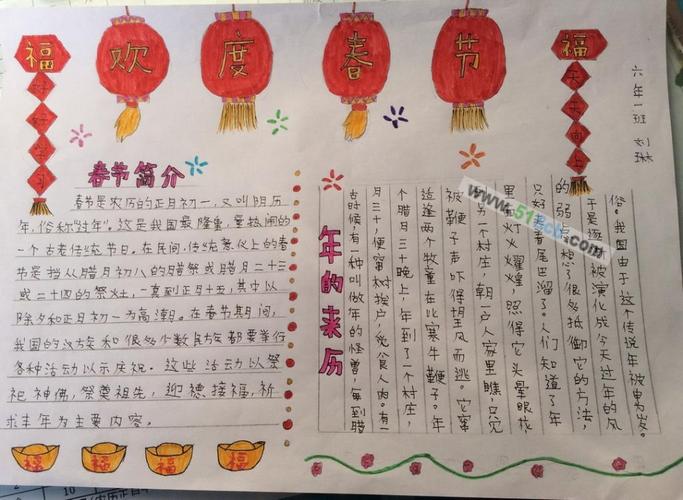 福
好好学习
欢度春节
福
天天向上
六年一班 刘琳
春节简介
春节是农历的正月初一,又叫阴历
年,俗称“过年”。这是我国最隆重,最热闹的
一个古老传统节日。在民间,传统意义上的春
节是指从腊月初八的腊祭或腊月二十三
或二十四的祭灶,一直到正月十五,其中以
除夕和正月初一为高潮。在春节期间,
我国的汉族和很多少数民族都要举行
各种活动以示庆祝。这些活动以祭
祀神佛,祭奠祖先,迎禧接福,祈
求丰年为主要内容。
福
福
福
福
年的来历
古时候,有一种叫做年的怪兽,每到腊
月三十,便窜村挨户,觅食人肉。有一
个腊月三十晚上,年到了一个村庄,
适逢两个牧童在比寒牛鞭子。年
被鞭子声吓得望风而逃。它窜
另一个村庄,朝一户人家里瞧,只见
里 灯火煌煌,照得它头晕眼花
只好 着尾巴溜了。人们知道了年
的弱点,想了很多抵御它的方法,
于是逐 被演化成今天过年的风
俗。我国由于这个传说年被申为岁。